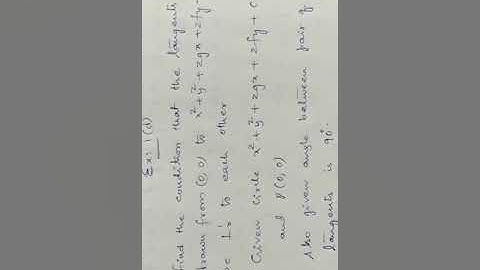 Ex: 1(d)
Find the condition that the tangents
drawn from (0,0) to x²+y²+2gx+2fy
be ⊥r to each other
Given circle x²+y²+2gx+2fy+c
and P(0,0)
Also given angle between pair of
tangents is 90°.